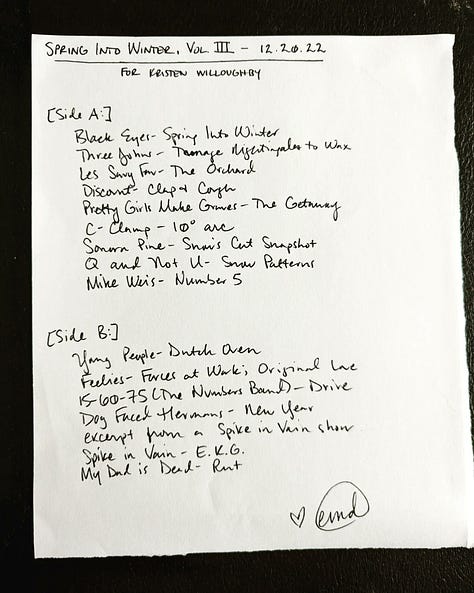 SPRING INTO WINTER, VOL III - 12.20.22
FOR KRISTEN WILLOUGHBY
[Side A:]
Black Eyes - Spring Into Winter
Three Johns - Teenage Nightingales to Wax
Les Savy Fav - The Orchard
Discount - Clap + Cough
Pretty Girls Make Graves - The Getaway
C-Clamp - 10° arc
Sonora Pine - Snow's Cut Snapshot
Q and Not U - Snow Patterns
Mike Weis - Number 5
[Side B:]
Young People - Dutch Oven
Feelies - Forces at Work, Original Love
15-60-75 (The Numbers Band) - Drive
Dog Faced Hermans - New Year
excerpt from a Spike in Vain show
Spike in Vain - E.K.G.
My Dad is Dead - Rut
♡